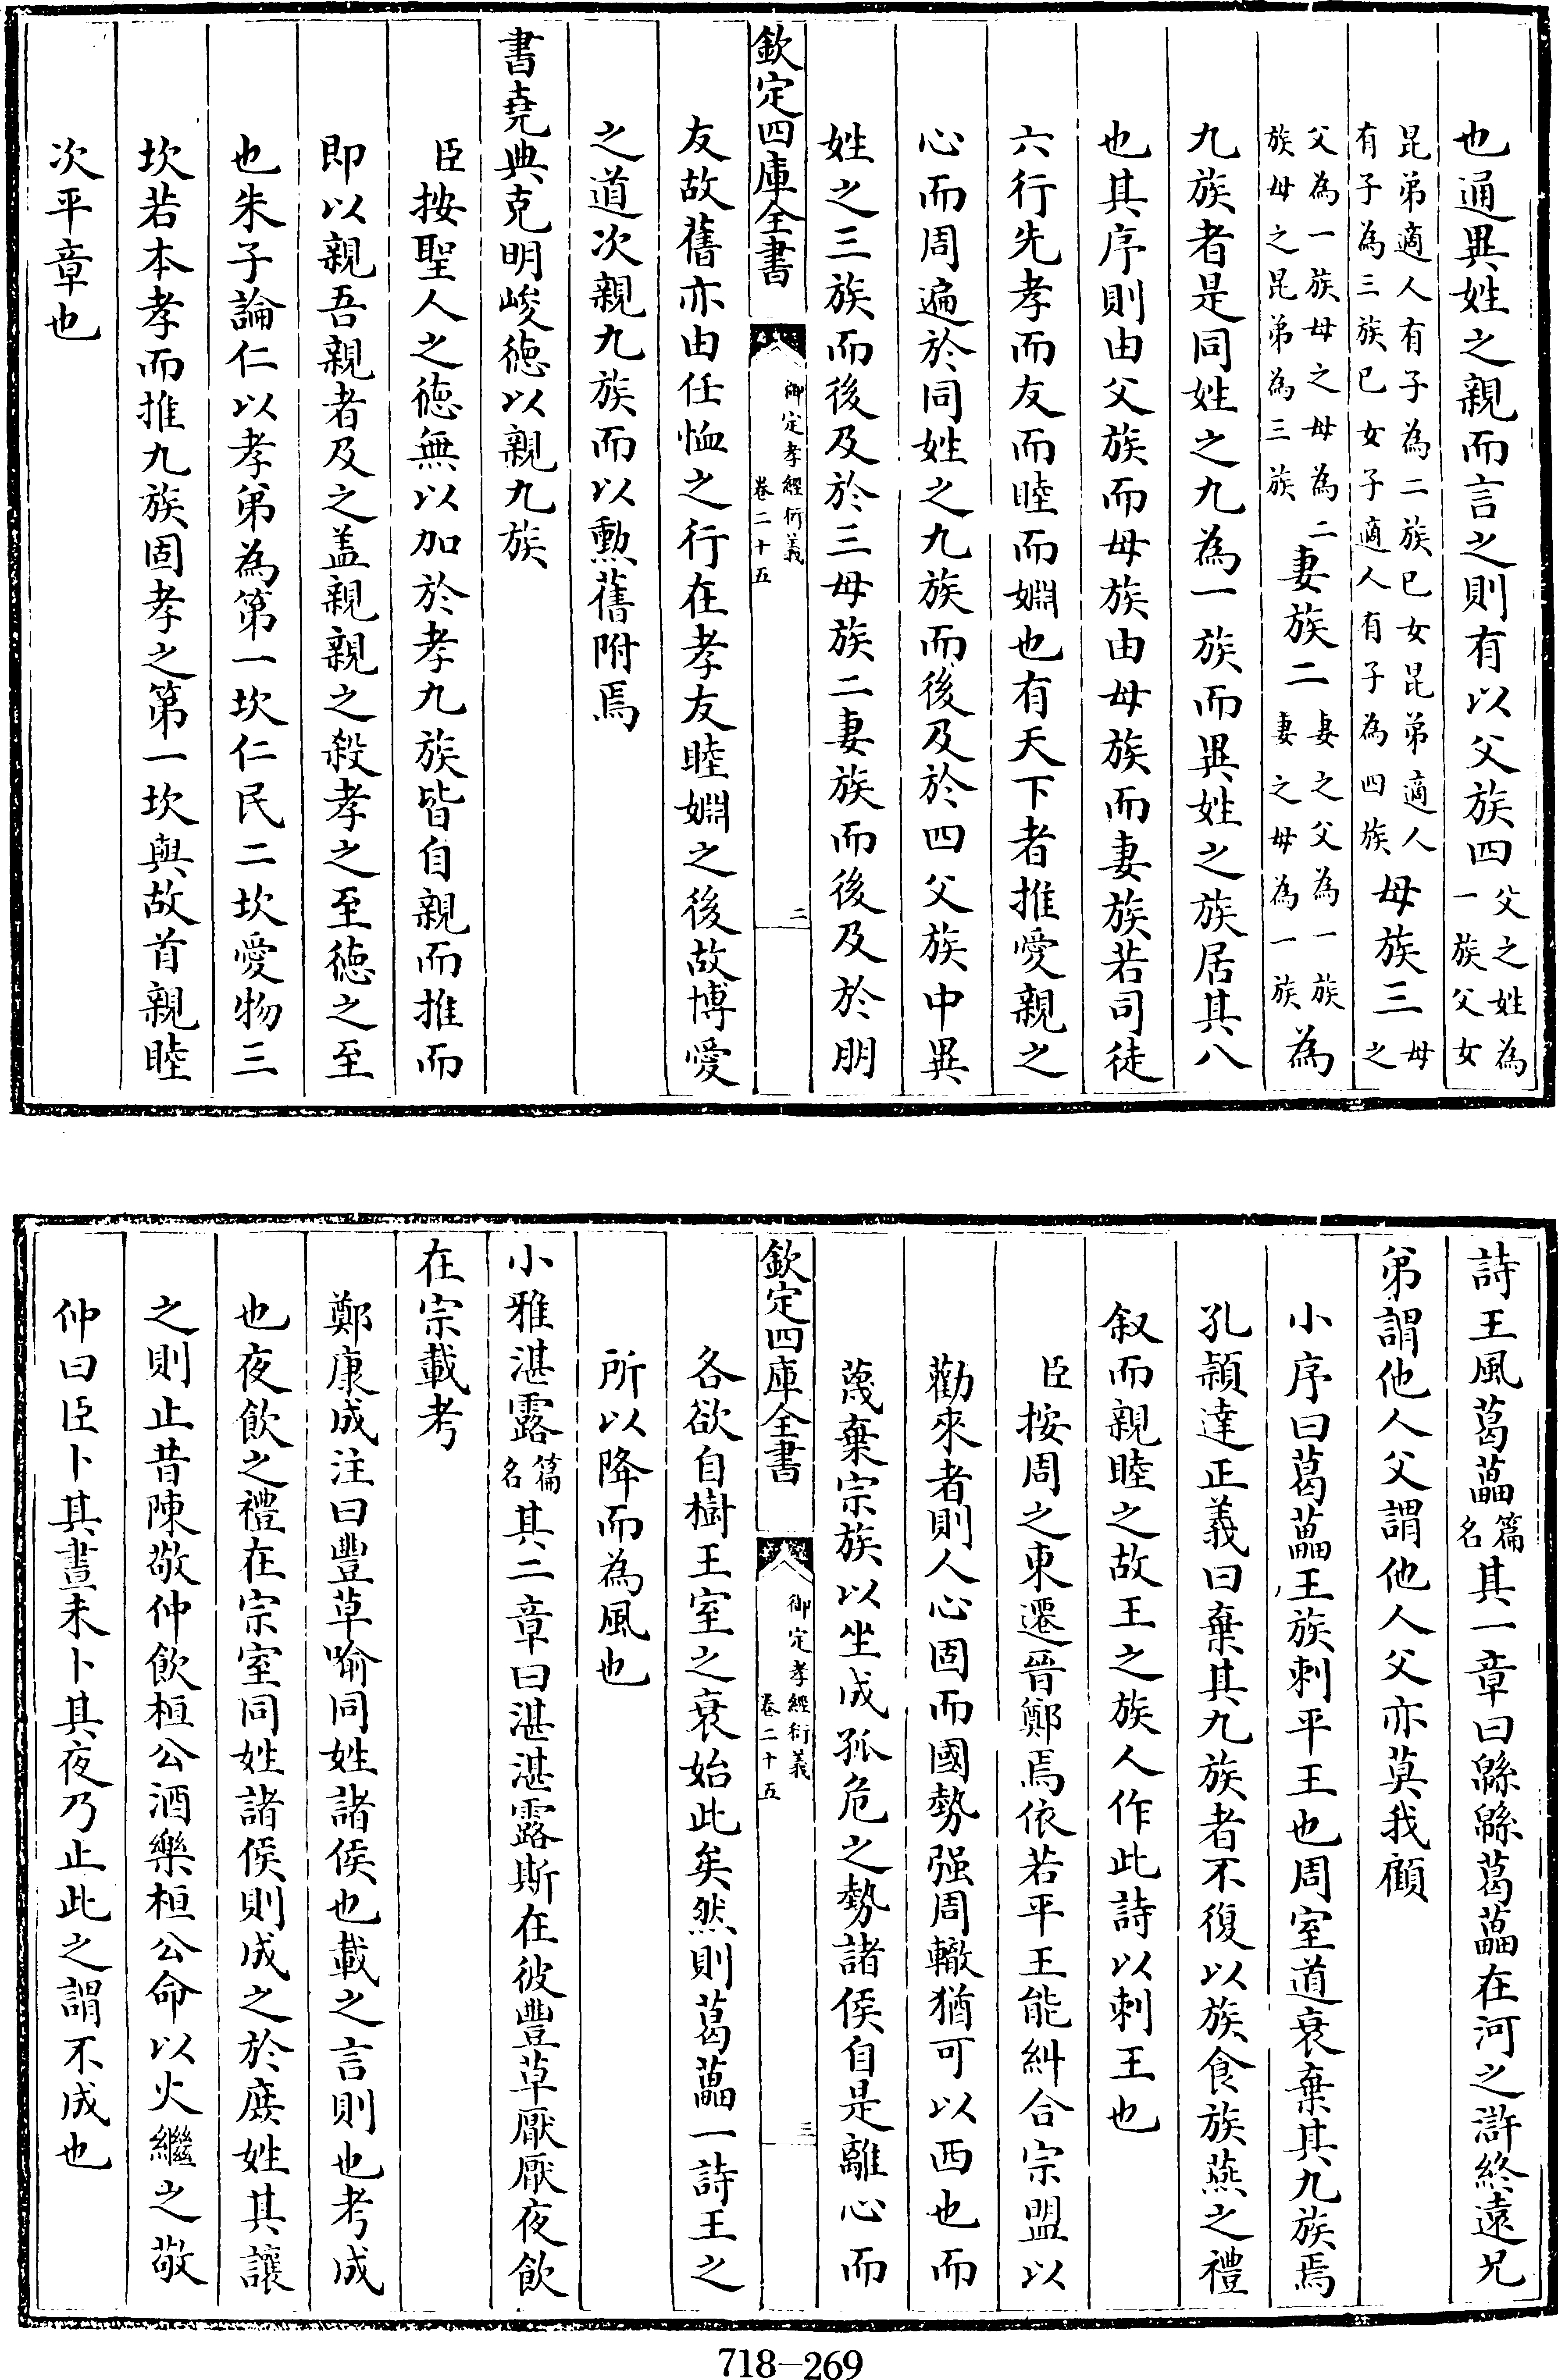 也通異姓之親而言之則有以父族四父之姓為一族父女
昆弟適人有子為二族已女昆弟適人有子為三族已女子適人有子為四族母族三母之
父為一族母之母為二族母之昆弟為三族妻族二妻之父為一族妻之母為一族為
九族者是同姓之九為一族而異姓之族居其八
也其序則由父族而母族由母族而妻族若司徒
六行先孝而友而睦而婣也有天下者推愛親之
心而周遍於同姓之九族而後及於四父族中異
姓之三族而後及於三母族二妻族而後及於朋
欽定四庫全書 御定孝經衍義 卷二十五 二
友故舊亦由任恤之行在孝友睦婣之後故博愛
之道次親九族而以勲舊附焉
書堯典克明峻德以親九族
臣按聖人之德無以加於孝九族皆自親而推而
即以親吾親者及之盖親親之殺孝之至德之至
也朱子論仁以孝弟為第一坎仁民二坎愛物三
坎若本孝而推九族固孝之第一坎與故首親睦
次平章也
詩王風葛藟篇名其一章曰緜緜葛藟在河之滸終遠兄
弟謂他人父謂他人父亦莫我顧
小序曰葛藟王族刺平王也周室道衰棄其九族焉
孔穎達正義曰棄其九族者不復以族食族燕之禮
叙而親睦之故王之族人作此詩以刺王也
臣按周之東遷晉鄭焉依若平王能糾合宗盟以
勸來者則人心固而國勢强周轍猶可以西也而
蔑棄宗族以坐成孤危之勢諸侯自是離心而
欽定四庫全書 御定孝經衍義 卷二十五 三
各欲自樹王室之衰始此矣然則葛藟一詩王之
所以降而為風也
小雅湛露篇名其二章曰湛湛露斯在彼豐草厭厭夜飲
在宗載考
鄭康成注曰豐草喻同姓諸侯也載之言則也考成
也夜飲之禮在宗室同姓諸侯則成之於庶姓其讓
之則止昔陳敬仲飲桓公酒樂桓公命以火繼之敬
仲曰臣卜其晝未卜其夜乃止此之謂不成也
718—269